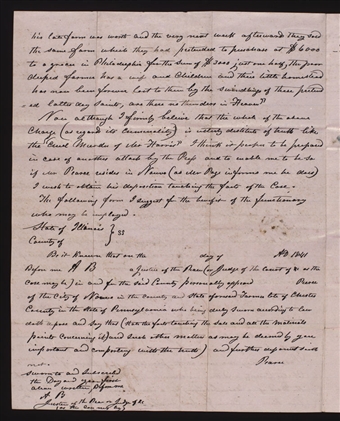 his late farm was worth and the very next week afterward they sold
the same farm which they had pretended to purchase at $6000
to a grocer in Philadelphia for the sum of $3000 just one half, the poor
farmer has a wife and Children and their little homestead
has now been forever lost to them by the swindling of these pretend
-ed latter day Saints, are there no thunders in Heaven?
Now although I firmly believe that the whole of the above
Charge (as regards its Criminality) is utterly destitute of truth like
the Cruel Murder of Mr Harris? I think it proper to be prepared
in case of another attack by the Press and to enable me to be so
if Mr Pearce resides in Nauvoo (as Mr Page informs me he does)
I wish to obtain his deposition touching the facts of the Case.
The following form I suggest for the benefit of the functionary
who may be employed.
State of Illinois
County of } SS
Be it Known that on the day of A.D. 1841
Before me A B a Justice of the Peace (or Judge of the Court of &c as the
case may be) in and for the said County personally appeared Pearce
of the City of Nauvoo in the county and State aforesaid late of Chester
County in the State of Pennsylvania who being duly sworn according to law
doth depose and say that (State the facts touching the Sale and all the material
points concerning it) and such other matter as may be deemed by you
important and comporting with the truth) and further deponent saith
not. Pearce
Sworn to and subscribed
the Day and year first
above written before me
A B
Justice of the Peace or Judge &c
(as the case may be)